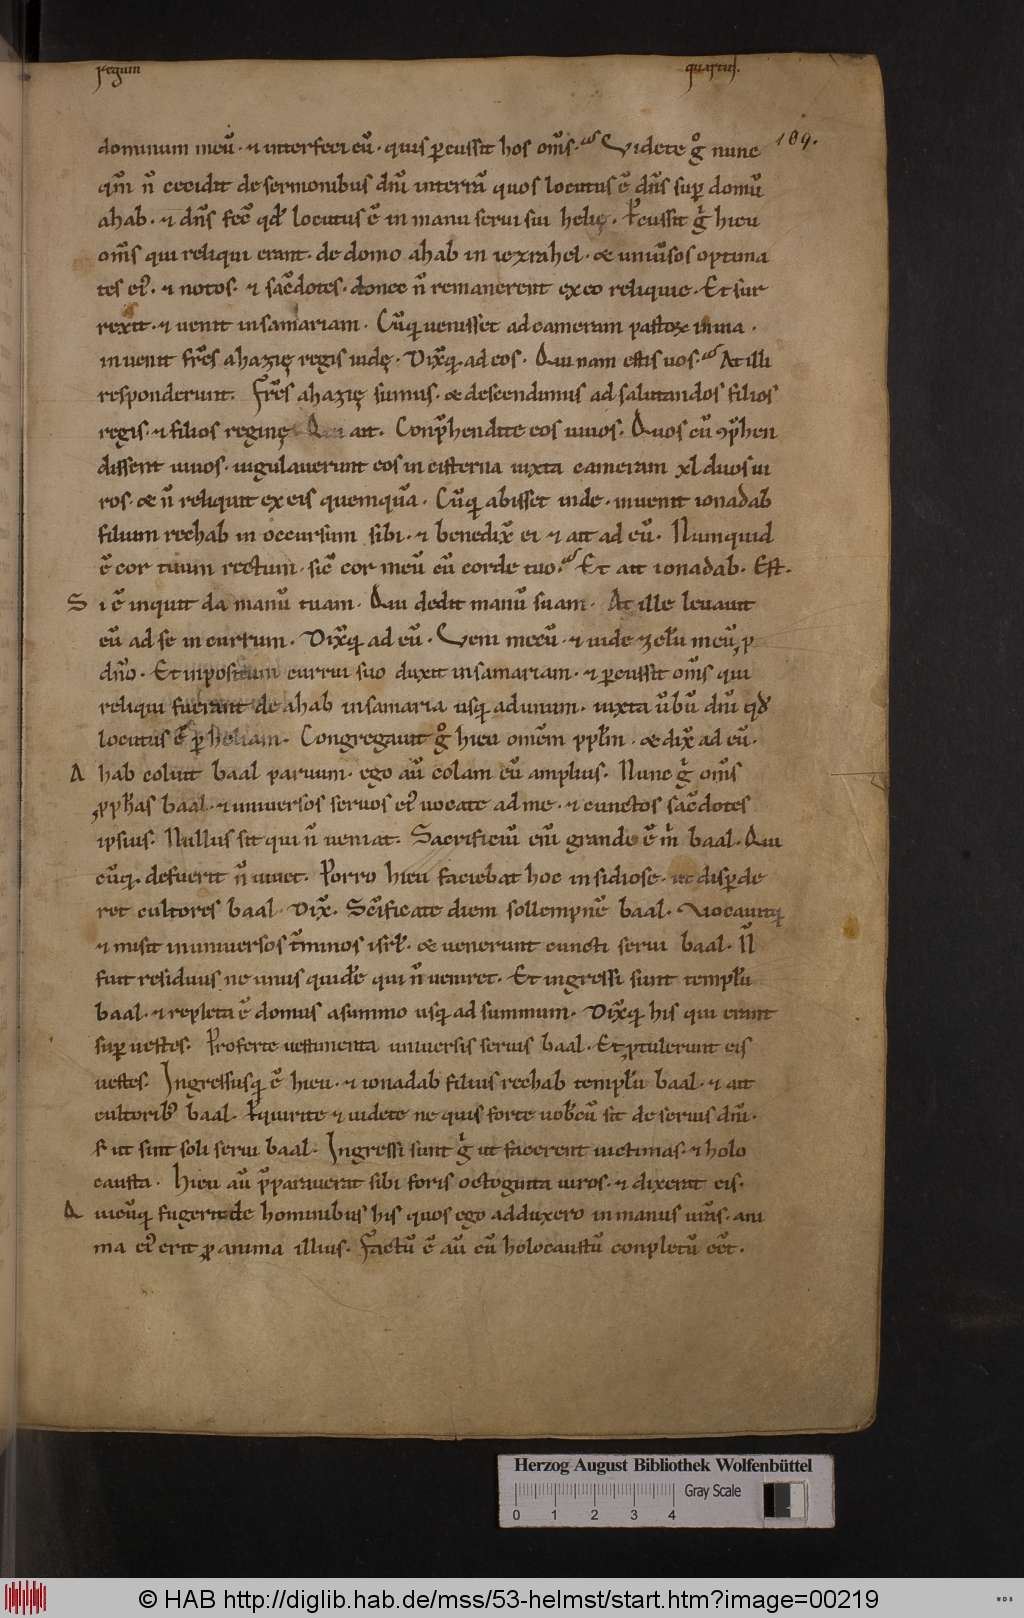 regum
quartus.
109.
dominum meū· ⁊ interfeci eū· quis ꝑcussit hos om̄s· Videte g° nunc
qm̄ n̄ cecidit de sermonibus dn̄i in terrā quos locutus ē dn̄s sup domū
ahab· ⁊ dn̄s fec̄ qd̄ locutus ē in manu serui sui helię· Ꝑcussit gͥ hieu
om̄s qui reliqui erant· de domo ahab in iezrahel· & uniūsos optima
tes ei᷒· ⁊ notos· ⁊ sac̄dotes· donec n̄ remanerent ex eo reliquie· Et sur
rexit· ⁊ uenit in samariam· Cūq; uenisset ad cameram pastorꝝ in uia·
inuenit fr̄es ahazię regis iudę· Dix̄q; ad eos· Qui nam estis uos· At illi
responderunt· Fr̄es ahazię sumus· & descendimus ad salutandos filios
regis· ⁊ filios reginę· Qui ait· Conp̄hendite eos uiuos· Quos cū ꝯp̄hen
dissent uiuos· iugulauerunt eos in cisterna iuxta cameram xl duos ui
ros· & n̄ reliquit ex eis quemquā· Cūq; abisset inde· inuenit ionadab
filium rechab in occursum sibi· ⁊ benedix̄ ei ⁊ ait ad eū· Numquid
ē cor tuum rectum· sic̄ cor meū cū corde tuo· Et ait ionadab· Est·
S i ē inquit da manū tuam· Qui dedit manū suam· At ille leuauit
eū ad se in currum· Dix̄q; ad eū· Veni mecū· ⁊ uide zelū meū p
dn̄o· Et inpositum currui suo duxit in samariam· ⁊ ꝑcussit om̄s qui
reliqui fuerant de ahab in samaria usq; ad unum· iuxta ūbū dn̄i qd̄
locutus ē ꝑ heliam· Congregauit g° hieu omēm ppl̄m· & dix̄ ad eū·
A hab coluit baal paruum· ego aū colam eū amplius· Nunc gͥ om̄s
ꝓph̄as baal· ⁊ uniuersos seruos ei᷒ uocate ad me· ⁊ cunctos sac̄dotes
ipsius· Nullus sit qui n̄ ueniat· Sacrificiū enī grande ē mͥ baal· Qui
cūq; defuerit n̄ uiuet· Porro hieu faciebat hoc insidiose· ut disꝑde
ret cultores baal· Dix̄· Sc̄ificate diem sollempnē baal· Vocauitq;
⁊ misit in uniuersos t̄minos isrl̄· & uenerunt cuncti serui baal· N̄
fuit residuus ne unus quidē qui n̄ ueniret· Et ingressi sunt templū
baal· ⁊ repleta ē domus a summo usq; ad summum· Dix̄q; his qui erant
sup uestes· Proferte uestimenta uniuersis seruis baal· Et ꝓtulerunt eis
uestes· Ingressusq; ē hieu· ⁊ ionadab filius rechab templū baal· ⁊ ait
cultorib᷒ baal· Ꝑquirite ⁊ uidete ne quis forte uob̄cū sit de seruis dn̄i·
s; ut sint soli serui baal· Ingressi sunt gͥ ut facerent uictimas· ⁊ holo
causta· Hieu aū p̄parauerat sibi foris octoginta uiros· ⁊ dixerat eis·
Q uicūq; fugerit de hominibus his quos ego adduxero in manus ur̄as· ani
ma ei᷒ erit ꝓ anima illius· Factū ē aū cū holocaustū conpletū eēt·
Herzog August Bibliothek Wolfenbüttel
0 1 2 3 4
Gray Scale
© HAB http://diglib.hab.de/mss/53-helmst/start.htm?image=00219